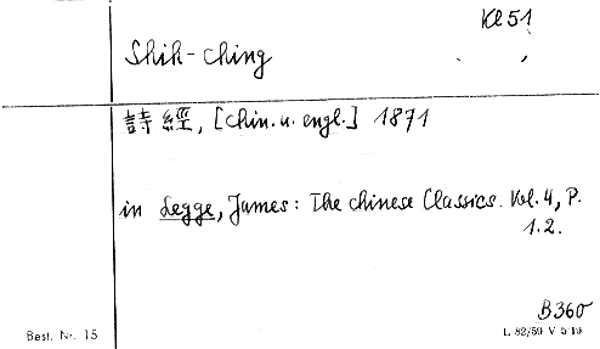 Kl 51
Shih-ching
詩經, [chin. u. engl.] 1871
in Legge, James: The Chinese Classics. Vol. 4, P.
1.2.
B360
Best. Nr. 15
L 82/59 V 5 19